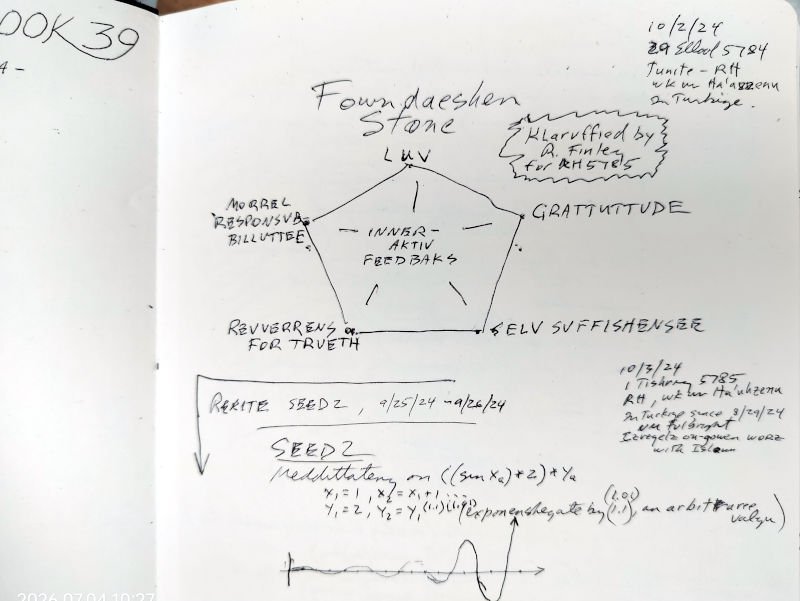 OOK 39
A -
10/2/24
29 Ellool 5784
Tunite - RH
wk uv Ha'azzenu
In Turkiye.
Fowndaeshen
Stone
Klaruffied by
R. Finley
for RH 5785
LUV
MORREL
RESPONSUB
BILLUTTEE
GRATTUTTUDE
INNER-
AKTIV
FEEDBAKS
REVVERRENS
FOR TRUETH
SELV SUFFISHENSEE
10/3/24
1 Tishrey 5785
RH, wk uv Ha'ahzenu
In Turkiye since 8/29/24
on Fulbright
Izregelz on-gowen worz
with Islam
REKITE SEEDZ, 9/25/24 - 9/26/24
SEEDZ
Meddittateng on ((sin Xa) * 2) * Ya
X1 = 1, X2 = X1 + 1 ....
Y1 = 2, Y2 = Y1 (1.1)
(exponenshegate by (1.1), an arbitraree
valyu)
2026.07.04 10:27